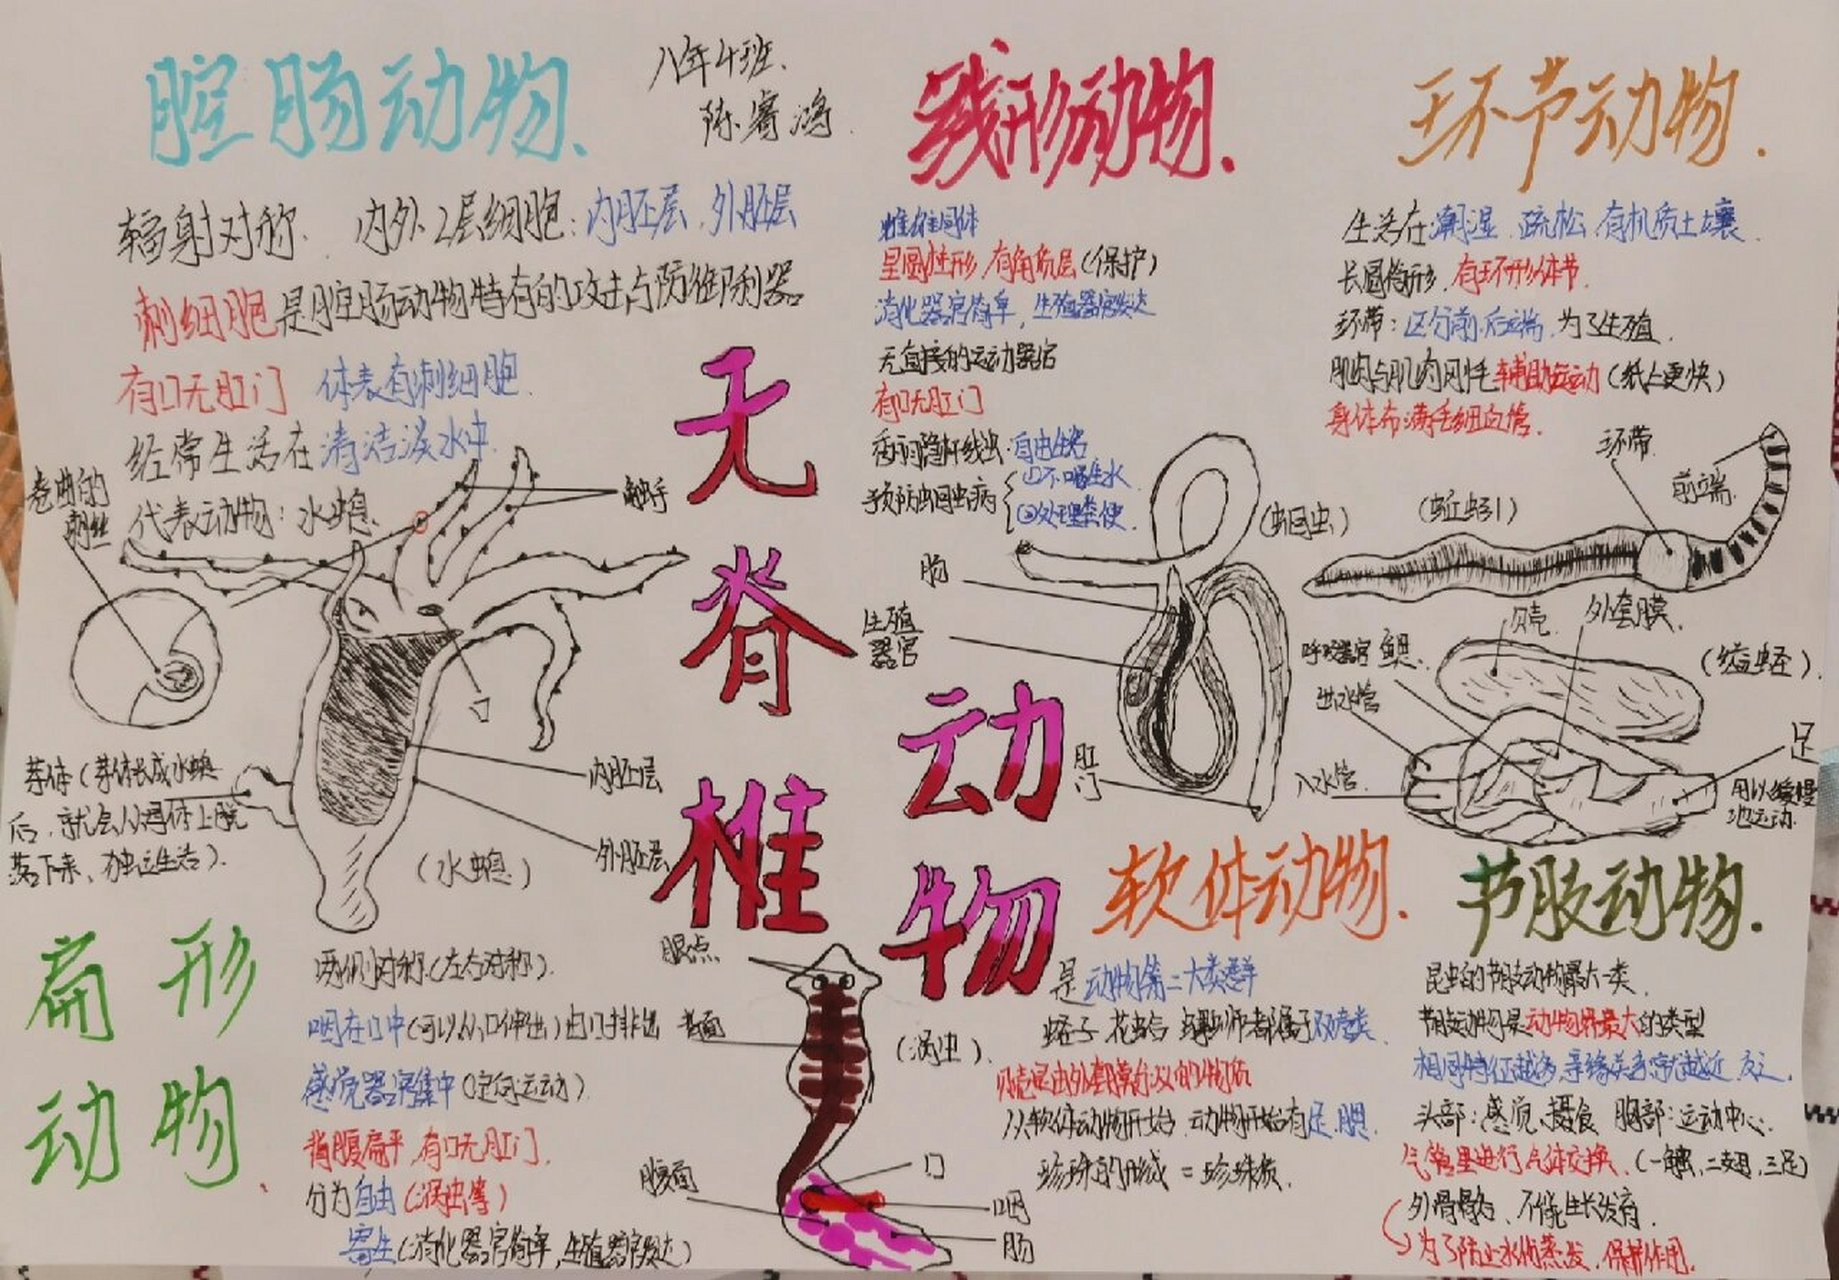 腔肠动物.
八年4班.
陈睿鸿.
辐射对称. 内外2层细胞:内胚层.外胚层
刺细胞是腔肠动物特有的攻击与防御利器
有口无肛门 体表有刺细胞.
经常生活在清洁淡水中.
代表动物:水螅.
卷曲的
刺丝
触手
口
芽体(芽体长成水螅
后,就会从母体上脱
落下来、独立生活).
内胚层
外胚层
(水螅)
无
脊
椎
动
物
线形动物.
呈圆柱形,有角质层(保护)
消化器官简单,生殖器官发达
无直接的运动器官
有口无肛门
秀丽隐杆线虫:自由生活
预防蛔虫病
①不喝生水
②处理粪便.
(蛔虫)
肠
生殖
器官
肛
门
环节动物.
生活在潮湿.疏松.有机质土壤.
长圆筒形,有环形体节.
环带:区分前.后端,为了生殖.
肌肉与肌肉刚毛辅助运动(纸上更快)
身体布满毛细血管.
环带.
前端.
(蚯蚓)
贝壳.
外套膜.
呼吸器官 鳃.
(缢蛏).
出水管
入水管.
足
用以缓慢
地运动.
扁形
动物.
两侧对称.(左右对称).
咽在口中(可以从口伸出)由口排出
感觉器官集中(定向运动).
背腹扁平,有口无肛门.
分为自由(涡虫等)
寄生(消化器官简单,生殖器官发达)
眼点
背面
(涡虫).
腹面
口
咽
肠
软体动物.
是动物第二大类群
蛏子 花蛤 都属于双壳类.
贝壳是由外套膜分泌的物质
从软体动物开始,动物开始有足.鳃.
珍珠的形成 = 珍珠质.
节肢动物.
昆虫的节肢动物最大一类.
节肢动物是动物界最大的类型
相同特征越多,亲缘关系就越近,反之.
头部:感觉.摄食 胸部:运动中心.
气管里进行气体交换.(一触,二翅,三足)
外骨骼,不能生长发育.
为了防止水份蒸发,保护作用.